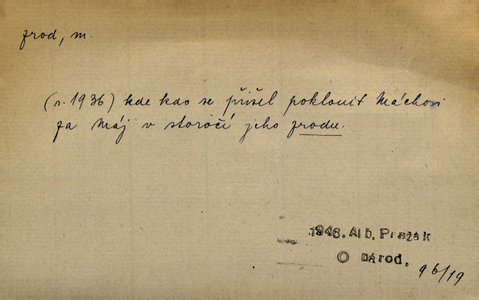 zrod, m.
(r. 1936) kde kdo se přišel poklonit Máchovi
za Máj v storočí jeho zrodu.
1946. Alb. Pražák
O národ. 96/19